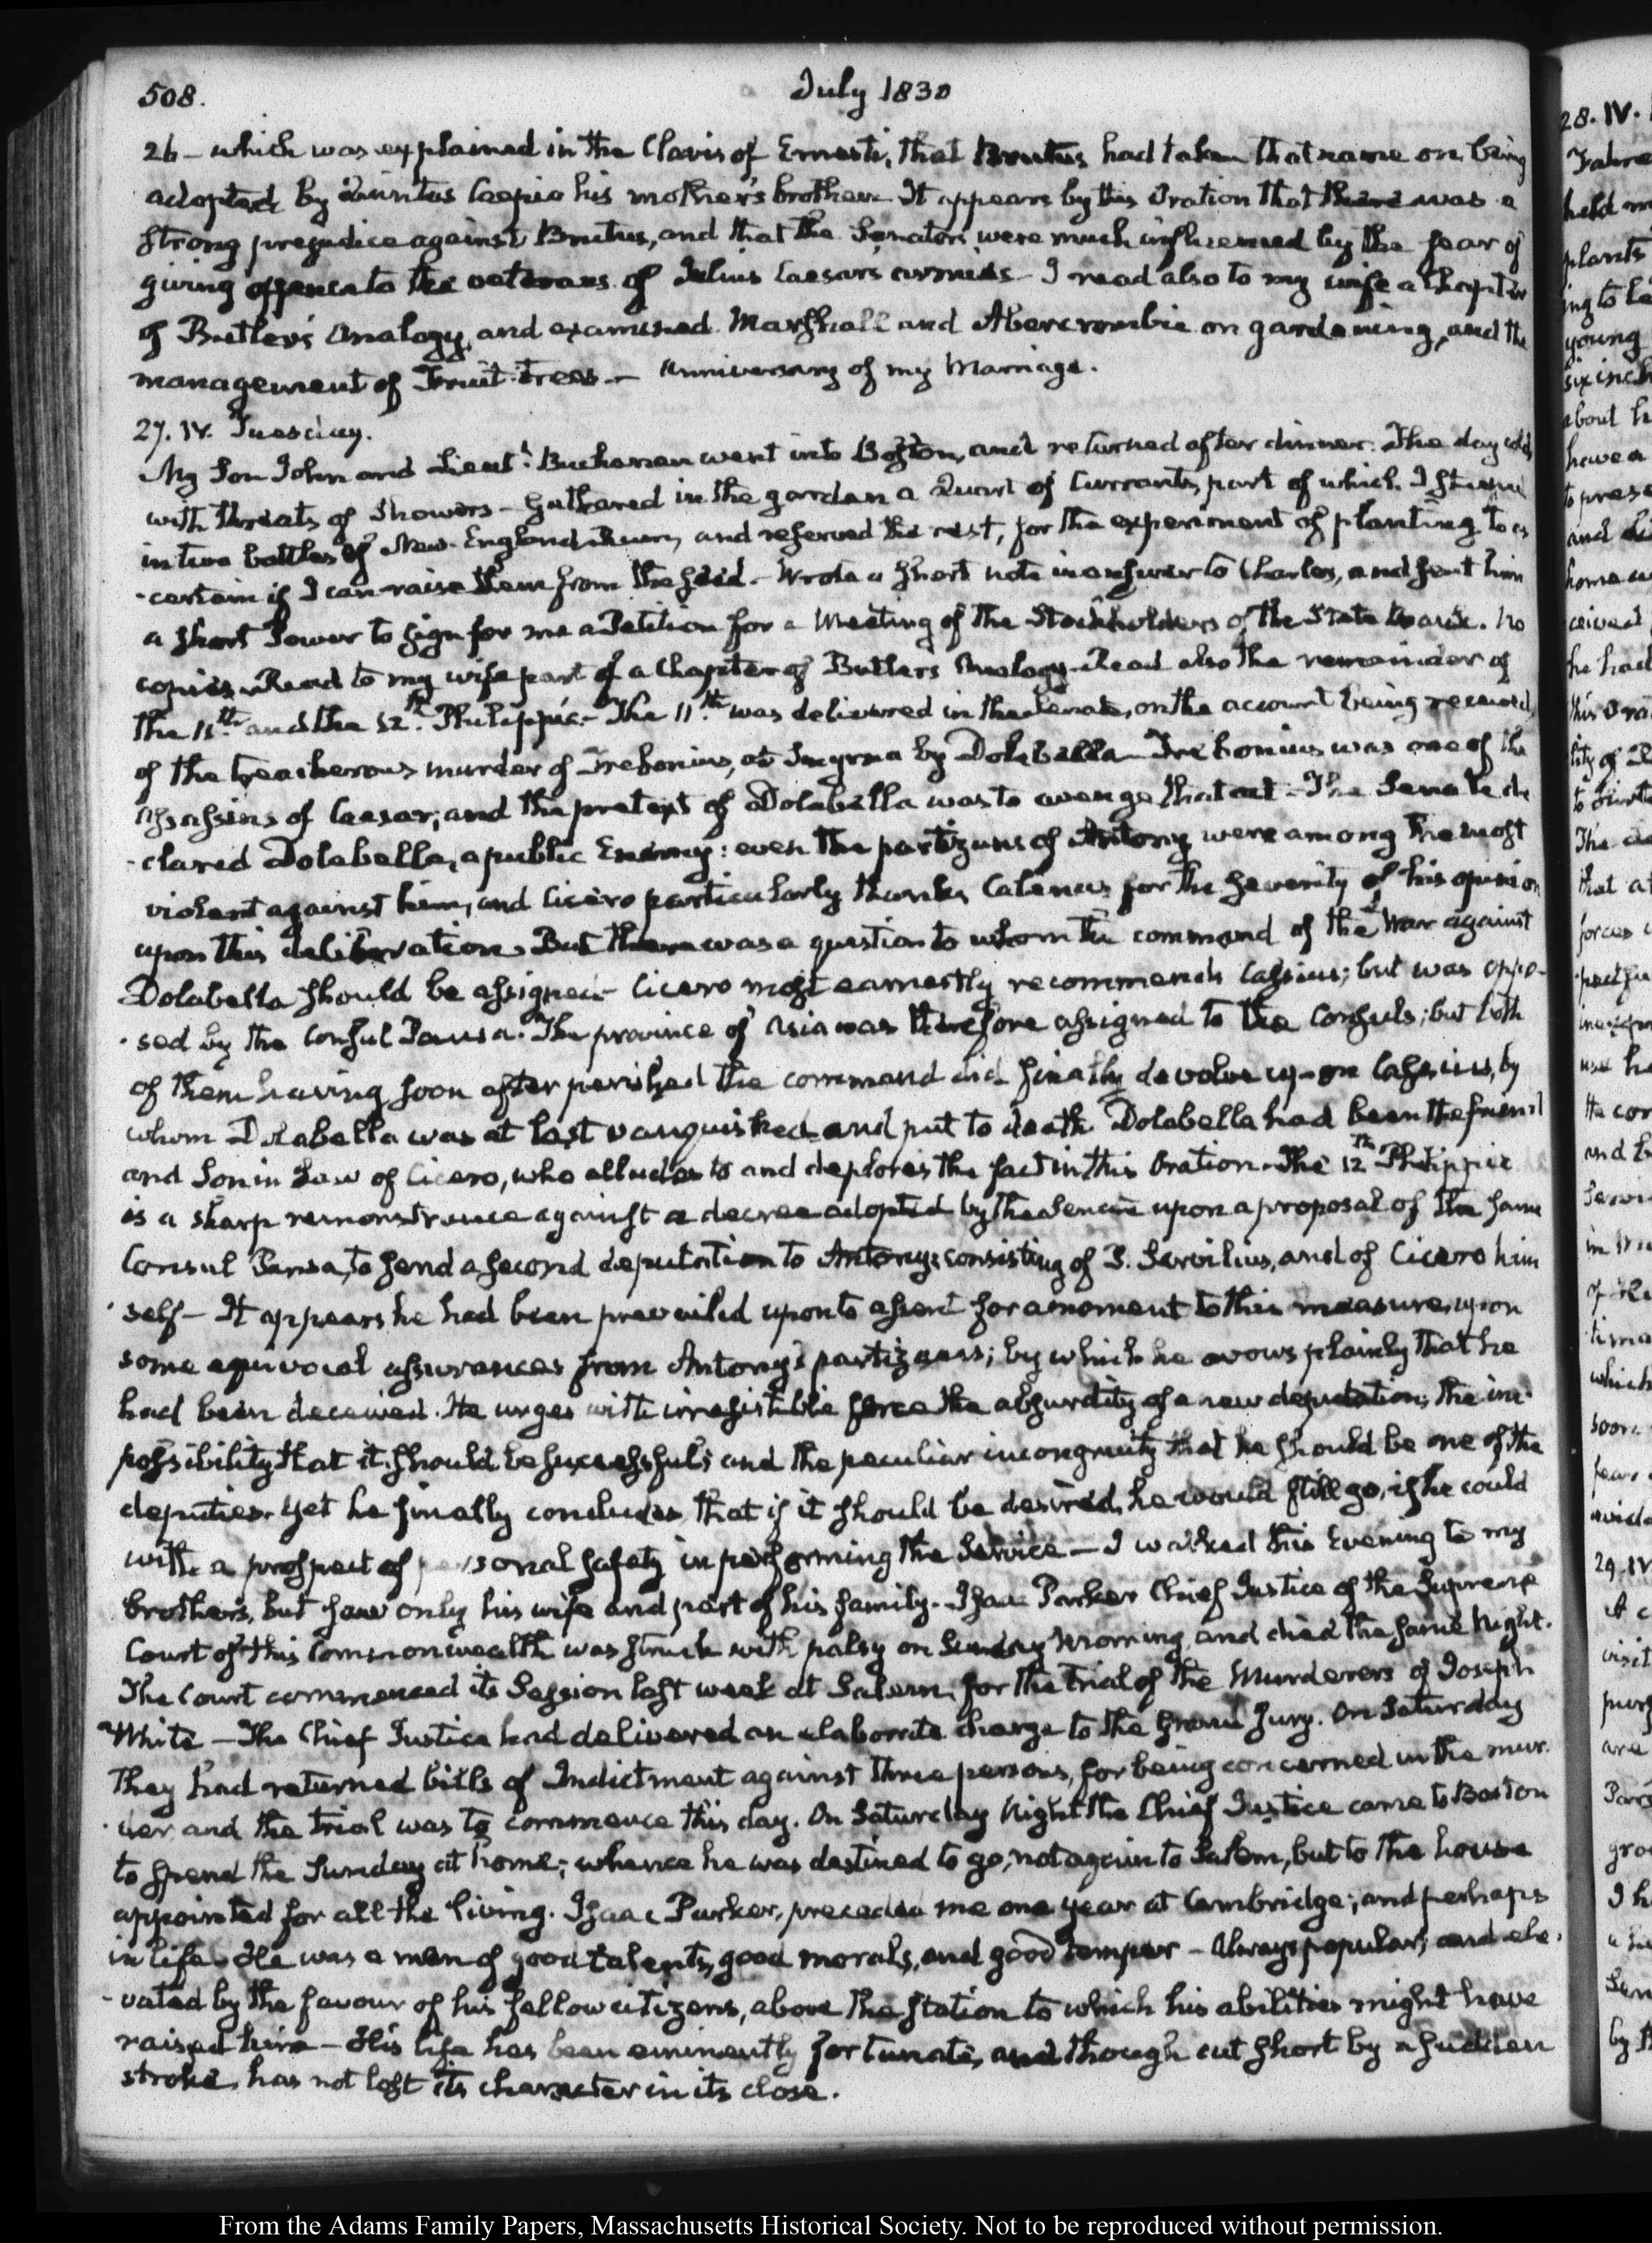 508.
July 1830
26 – which was explained in the Clavis of Ernesti, that Brutus had taken that name on being
adopted by Quintus Caepio his mother's brother. It appears by this Oration that there was a
strong prejudice against Brutus, and that the Senators were much influenced by the fear of
giving offence to the veterans of Julius Caesar's armies – I read also to my wife a Chapter
of Butler's Analogy, and examined Marshall and Abercrombie on gardening, and the
management of Fruit-trees – Anniversary of my Marriage.
27. IV. Tuesday.
My Son John and Lieut.t Buchanan went into Boston, and returned after dinner. The day cold
with threats of Showers – Gathered in the garden a Quart of Currants, part of which I
in two bottles of New-England Rum, and reserved the rest, for the experiment of planting to as
-certain if I can raise them from the seed. – Wrote a short note in answer to Charles, and sent him
a short Power to sign for me a Petition for a Meeting of the Stockholders of the State Bank. No
copies. Read to my wife part of a Chapter of Butlers Analogy – Read also the remainder of
the 11th and the 12th Philippic – The 11th was delivered in the Senate, on the account being received,
of the treacherous murder of Trebonius, at Smyrna by Dolabella – Trebonius was one of the
assassins of Caesar; and the pretext of Dolabella was to avenge that act – The Senate de
-clared Dolabella, a public Enemy: even the partizans of Antony were among the most
violent against him, and Cicero particularly thanks Calenus for the severity of his opinion
upon this deliberation. But there was a question to whom the command of the War against
Dolabella should be assigned – Cicero most earnestly recommends Cassius; but was oppo-
-sed by the Consul Pansa. The province of Asia was therefore assigned to the Consuls; but both
of them having soon after perished the command did finally devolve upon Cassius, by
whom Dolabella was at last vanquished and put to death Dolabella had been the friend
and Son in Law of Cicero, who alludes to and deplores the fact in this Oration. The 12th Philippic
is a sharp remonstrance against a decree adopted by the Senate upon a proposal of the same
Consul Pansa, to send a second deputation to Antony; consisting of P. Servilius, and of Cicero him
-self – It appears he had been prevailed upon to assent for a moment to this measure, upon
some equivocal assurances from Antony's partizans; by which he avows plainly that he
had been deceived. He urges with irresistible force the absurdity of a new deputation; the im-
possibility that it should be successful; and the peculiar incongruity that he should be one of the
deputies. Yet he finally concludes that if it should be desired, he would still go, if he could
with a prospect of personal safety in performing the Service – I walked this Evening to my
brother's, but saw only his wife and part of his family. Isaac Parker Chief Justice of the Supreme
Court of this Commonwealth was struck with palsy on Sunday Morning, and died the same Night.
The Court commenced its Session last week at Salem, for the trial of the Murderers of Joseph
White – The Chief Justice had delivered an elaborate charge to the Grand Jury. On Saturday
They had returned bills of Indictment against three persons, for being concerned in the mur
-der and the trial was to commence this day. On Saturday Night the Chief Justice came to Boston
to spend the Sunday at home; whence he was destined to go, not again to Salem, but to the house
appointed for all the living. Isaac Parker, preceded me one year at Cambridge; and perhaps
in life. He was a man of good talents, good morals, and good temper – Always popular; and ele-
-vated by the favour of his fellow citizens, above the station to which his abilities might have
raised him – His life has been eminently fortunate, and though cut short by a sudden
stroke, has not lost its character in its close.
From the Adams Family Papers, Massachusetts Historical Society. Not to be reproduced without permission.